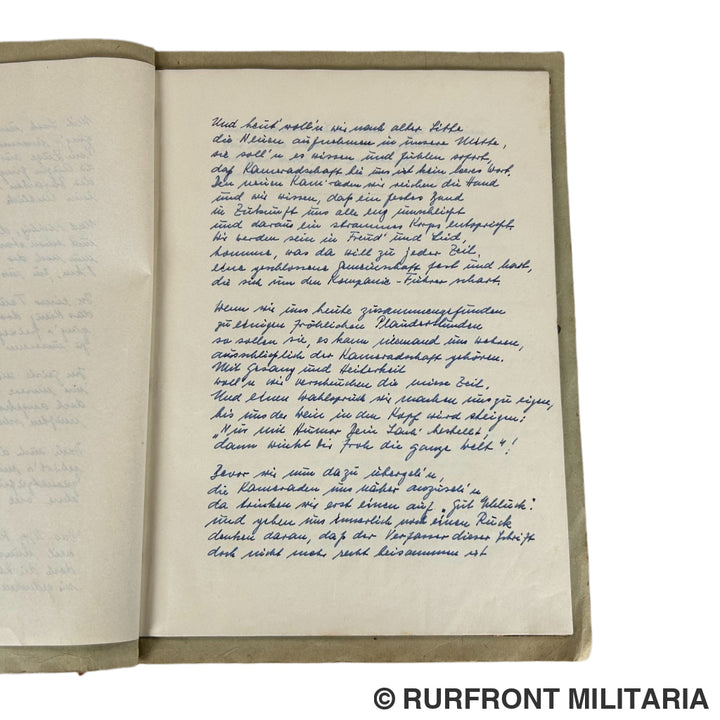 Und heut' woll'n wir nach alter Sitte
die Neuen aufnehmen in unsere Mitte,
sie soll'n es wissen und fühlen sofort,
daß Kameradschaft bei uns ist kein leeres Wort.
Den neuen Kam'raden wir reichen die Hand
und wir wissen, daß ein festes Band
in Zukunft uns alle eng umschleift
und daraus ein strammes Korps entsprießt.
Wir werden sein in Freud' und Leid,
komme, was da will zu jeder Zeit,
eine geschlossene Gemeinschaft fest und hart,
die sich um den Kompanie-Führer schart.
Wenn wir uns heute zusammengefunden
zu einigen fröhlichen Plauderstunden
so sollen sie, es kann niemand uns wehren,
ausschließlich der Kameradschaft gehören.
Mit Gesang und Heiterkeit
woll'n wir verscheuchen die miese Zeit.
Und einen Wahlspruch wir machen uns zu eigen,
bis uns der Wein in den Kopf wird steigen:
„Nur mit Humor Dein Sach' bestellt,
dann winkt Dir froh die ganze Welt"!
Bevor wir nun dazu übergeh'n,
die Kameraden uns näher anzuseh'n
da trinken wir erst einen auf „Gut Schluck"
und geben uns innerlich noch einen Ruck
denken daran, daß der Verfasser dieser Schrift
doch nicht mehr recht beisammen ist
© RURFRONT MILITARIA